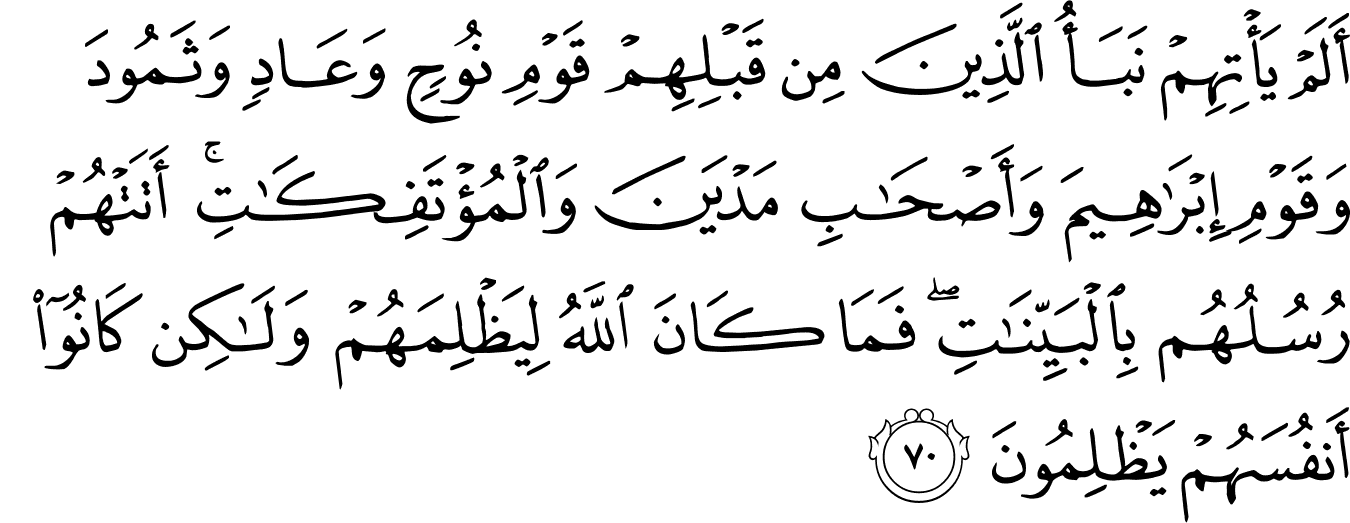 أَلَمۡ يَأۡتِهِمۡ نَبَأُ ٱلَّذِينَ مِن قَبۡلِهِمۡ قَوۡمِ نُوحٖ وَعَادٖ وَثَمُودَ
وَقَوۡمِ إِبۡرَٰهِيمَ وَأَصۡحَٰبِ مَدۡيَنَ وَٱلۡمُؤۡتَفِكَٰتِۚ أَتَتۡهُمۡ
رُسُلُهُم بِٱلۡبَيِّنَٰتِۖ فَمَا كَانَ ٱللَّهُ لِيَظۡلِمَهُمۡ وَلَٰكِن كَانُوٓاْ
أَنفُسَهُمۡ يَظۡلِمُونَ ٧٠